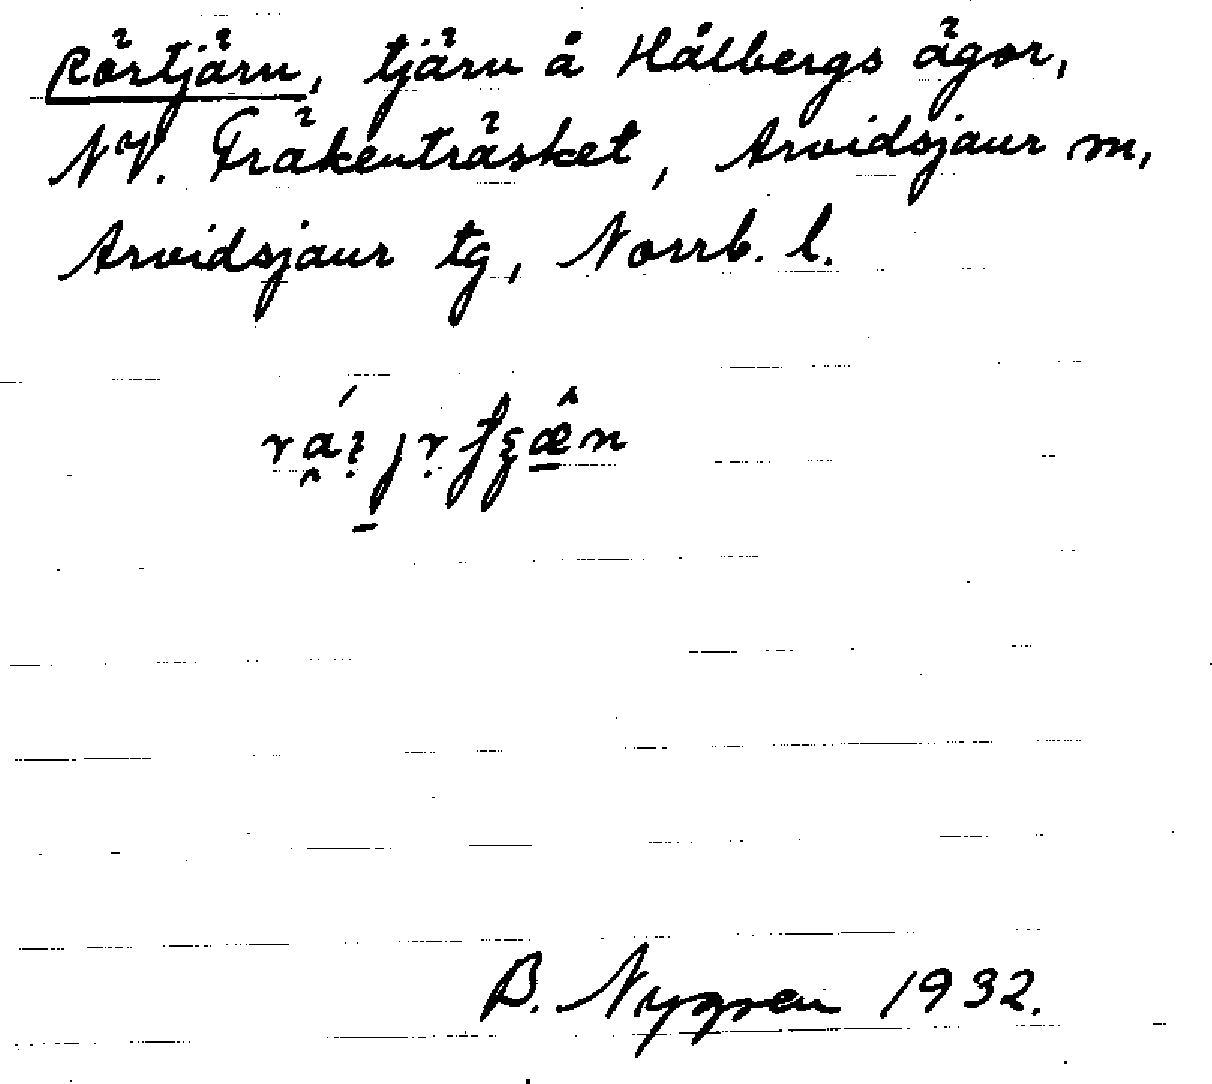 Rörtjärn, tjärn å Hålbergs ägor,
NV. Fräkenträsket, Arvidsjaur sn,
Arvidsjaur tg, Norrb. l.
B. Nygren 1932.